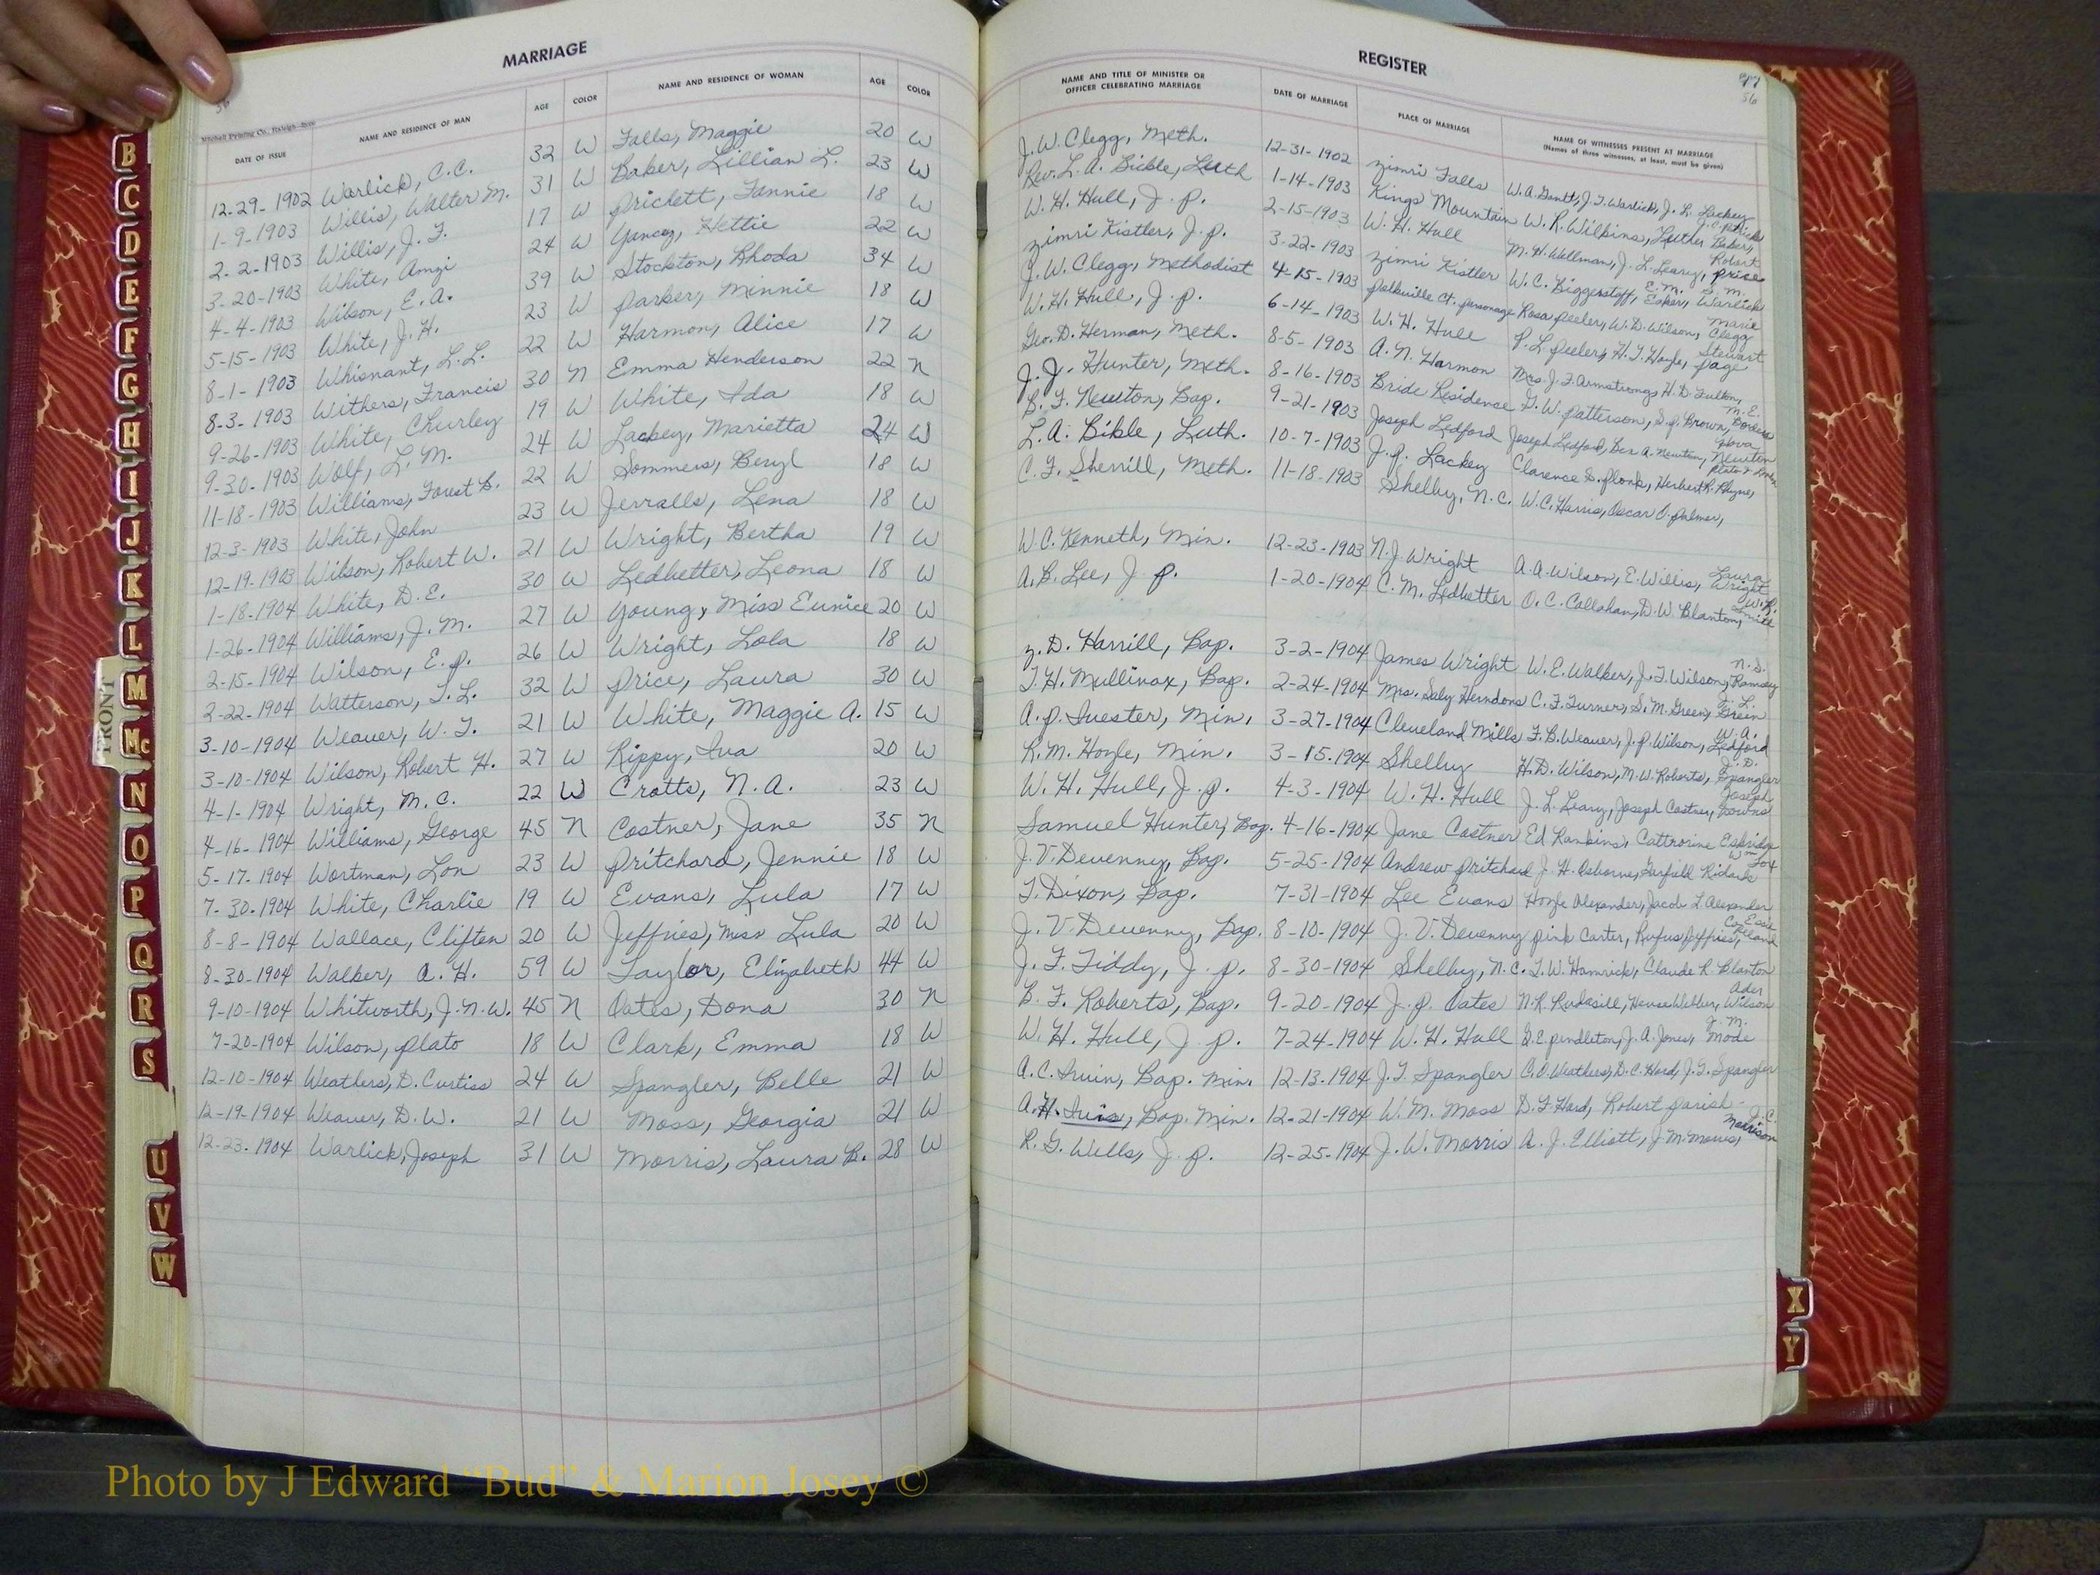 MARRIAGE
REGISTER
DATE OF ISSUE NAME AND RESIDENCE OF MAN AGE COLOR NAME AND RESIDENCE OF WOMAN AGE COLOR NAME AND TITLE OF MINISTER OR OFFICER CELEBRATING MARRIAGE DATE OF MARRIAGE PLACE OF MARRIAGE NAME OF WITNESSES PRESENT AT MARRIAGE (Names of three witnesses, at least, must be given)
12-29-1902 Warlick, C.C. 32 W Falls, Maggie 20 W J.W. Clegg, Meth. 12-31-1902 Zimri Falls W.A. Gantt, J.T. Warlick, J.L. Lackey
1-9-1903 Willis, Walter M. 31 W Baker, Lillian L. 23 W Rev. L.A. Bickle, Luth 1-14-1903 Kings Mountain W.R. Wilkins, Luther Baker,
2-2-1903 Willis, J.F. 17 W Prichett, Fannie 18 W W.H. Hull, J.P. 2-15-1903 W.H. Hull M.H. Wellman, J.L. Leary, Robert Price
3-20-1903 White, Amzi 24 W Yancey, Hettie 22 W Zimri Kistler, J.P. 3-22-1903 Zimri Kistler W.C. Biggerstaff, E.M. Eaker, S.M. Warlick
4-4-1903 Wilson, E.A. 39 W Stockton, Rhoda 34 W J.W. Clegg, Methodist 4-15-1903 Polkville Ct. Parsonage Rosa Peeler, W.D. Wilson, Marie Clegg
5-15-1903 White, J.H. 23 W Parker, Minnie 18 W W.H. Hull, J.P. 6-14-1903 W.H. Hull P.L. Peeler, H.T. Hoyle, Stewart Page
8-1-1903 Whisnant, L.L. 22 W Harmon, Alice 17 W Geo. D. Herman, Meth. 8-5-1903 A.N. Harmon Mrs. J.F. Armstrong, H.D. Fulton,
8-3-1903 Withers, Francis 30 N Emma Henderson 22 N J.J. Hunter, Meth. 8-16-1903 Bride Residence G.W. Patterson, S.P. Brown, M.E. Borders
9-26-1903 White, Churley 19 W White, Ida 18 W B.F. Newton, Bap. 9-21-1903 Joseph Ledford Joseph Ledford, Ben A. Newton, Newton
9-30-1903 Wolf, L.M. 24 W Lackey, Marietta 24 W L.A. Bikle, Luth. 10-7-1903 J.P. Lackey Clarence S. Plonk, Herbert R. Rhyne,
11-18-1903 Williams, Forest B. 22 W Sommers, Beryl 18 W C.F. Sherrill, Meth. 11-18-1903 Shelby, N.C. W.C. Harris, Oscar O. Palmer,
12-3-1903 White, John 23 W Jerralls, Lena 18 W
12-19-1903 Wilson, Robert W. 21 W Wright, Bertha 19 W W.C. Kenneth, Min. 12-23-1903 N.J. Wright A.A. Wilson, E. Willis, Laura Wright
1-18-1904 White, D.E. 30 W Ledbetter, Leona 18 W A.B. Lee, J.P. 1-20-1904 C.M. Ledbetter O.C. Callahan, D.W. Blanton, W.R. Smith
1-26-1904 Williams, J.M. 27 W Young, Miss Eunice 20 W
2-15-1904 Wilson, E.P. 26 W Wright, Lola 18 W Z.D. Harrill, Bap. 3-2-1904 James Wright W.E. Walker, J.T. Wilson, N.S. Ramsey
2-22-1904 Watterson, T.L. 32 W Price, Laura 30 W T.H. Mullinax, Bap. 2-24-1904 Mrs. Saby Herndons C.F. Turner, S.M. Green, Green
3-10-1904 Weaver, W.T. 21 W White, Maggie A. 15 W A.P. Iuester, Min. 3-27-1904 Cleveland Mills F.B. Weaver, J.P. Wilson, W.A. Ledford
3-10-1904 Wilson, Robert H. 27 W Rippy, Iva 20 W R.M. Hoyle, Min. 3-15-1904 Shelby H.D. Wilson, M.W. Roberts, J.D. Spangler
4-1-1904 Wright, M.C. 22 W Crotts, N.A. 23 W W.H. Hull, J.P. 4-3-1904 W.H. Hull J.L. Leary, Joseph Costner, Joseph Downs
4-16-1904 Williams, George 45 N Costner, Jane 35 N Samuel Hunter, Bap. 4-16-1904 Jane Costner Ed Rankins, Cattrorine Eskridge
5-17-1904 Wortman, Lon 23 W Pritchard, Jennie 18 W J.V. Devenny, Bap. 5-25-1904 Andrew Pritchard J.H. Osborne, Garfield Wm Fox
7-30-1904 White, Charlie 19 W Evans, Lula 17 W T. Dixon, Bap. 7-31-1904 Lee Evans Hoyle Alexander, Jacob L Alexander
8-8-1904 Wallace, Cliften 20 W Jeffries, Miss Lula 20 W J.V. Devenny, Bap. 8-10-1904 J.V. Devenny Pink Carter, Rufus Jeffries, Essie Copeland
8-30-1904 Walker, A.H. 59 W Taylor, Elizabeth 44 W J.F. Tiddy, J.P. 8-30-1904 Shelby, N.C. T.W. Hamrick, Claude R. Blanton
9-10-1904 Whitworth, J.N.W. 45 N Oates, Dona 30 N B.F. Roberts, Bap. 9-20-1904 J.P. Oates N.R. Rudasill, Webber, Ader Wilson
7-20-1904 Wilson, Plato 18 W Clark, Emma 18 W W.H. Hull, J.P. 7-24-1904 W.H. Hull G.E. Pendleton, J.A. Jones, J.M. Mode
12-10-1904 Weathers, D. Curtiss 24 W Spangler, Belle 21 W A.C. Irvin, Bap. Min. 12-13-1904 J.T. Spangler C.O. Weathers, D.C. Hord, J.G. Spangler
12-19-1904 Weaver, D.W. 21 W Moss, Georgia 21 W A.H. Bap. Min. 12-21-1904 W.M. Moss D.F. Hord, Robert Parish
12-23-1904 Warlick, Joseph 31 W Morris, Laura B. 28 W R.G. Wells, J.P. 12-25-1904 J.W. Morris A.J. Elliott, J.M. Morris, J.C. Morrison
B
C
D
E
F
G
H
I
J
K
L
M
Mc
N
O
P
Q
R
S
U
V
W
X
Y
FRONT
Photo by J Edward “Bud” & Marion Josey ©